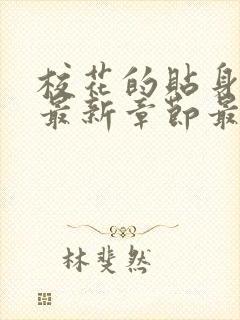 校花的贴身
最新章節最
林斐然